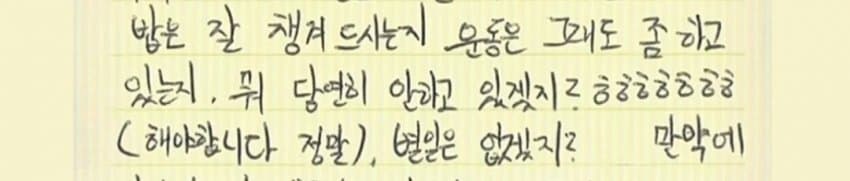 밥은 잘 챙겨 드시는지 운동은 그래도 좀 하고
있는지, 뭐 당연히 안하고 있겠지? ㅎㅎㅎㅎㅎㅎㅎ
(해야합니다 정말), 별일은 없겠지? 만약에